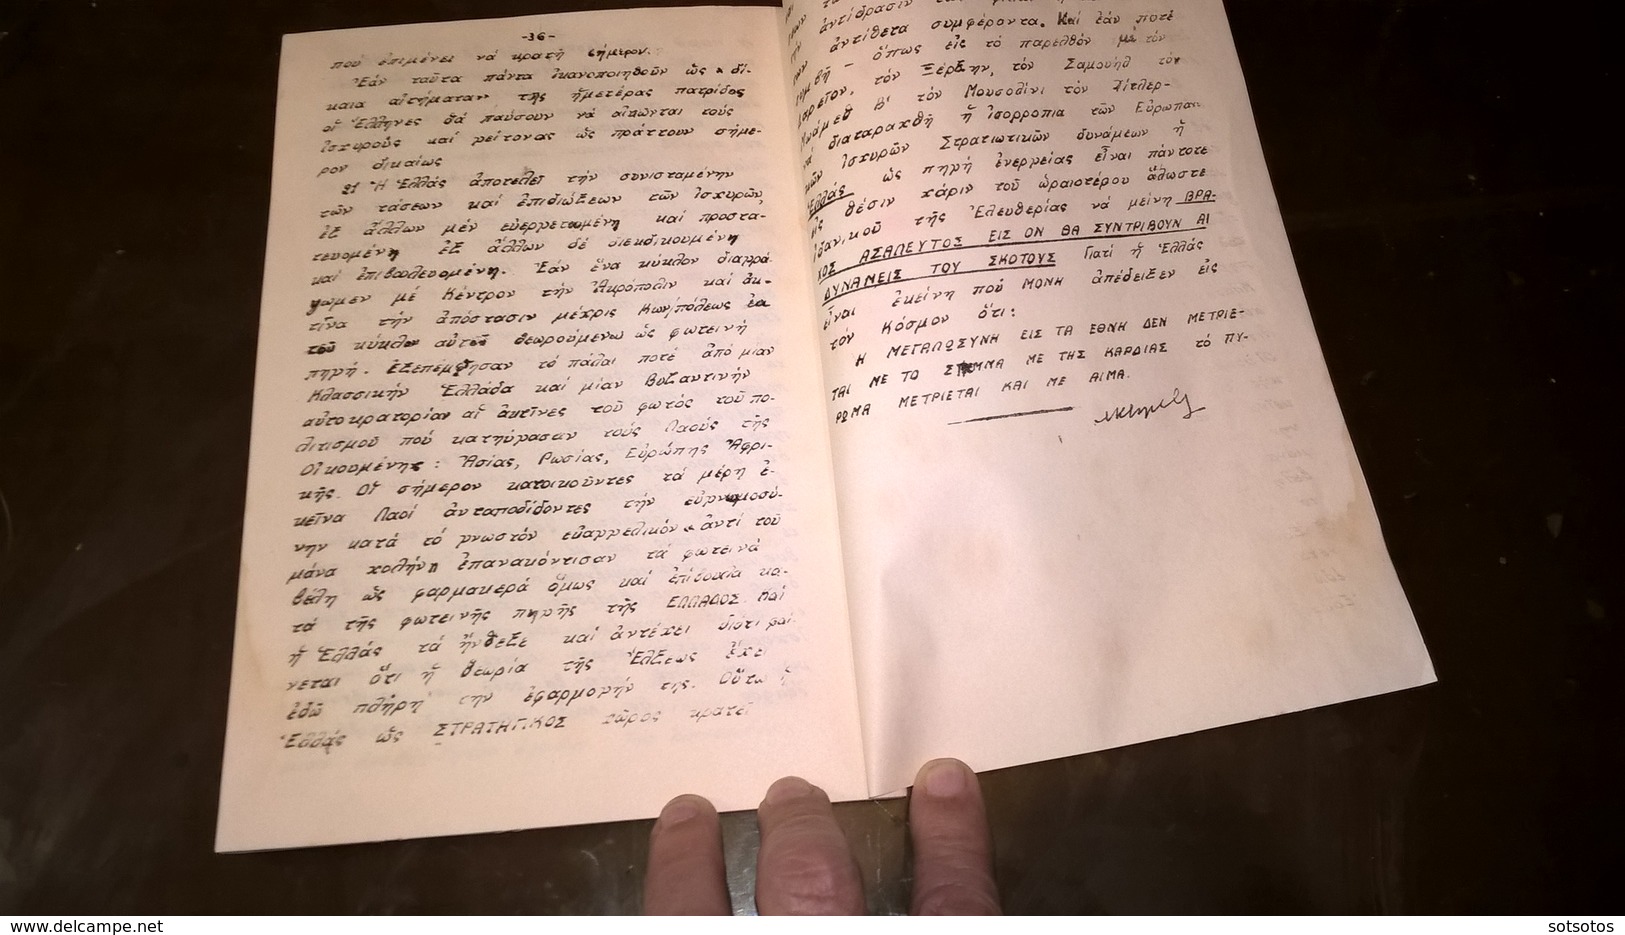 -36-
πού ἐπιμένει νά κρατῆ σήμερον.
Ἐάν ταῦτα πάντα ἱκανοποιηθοῦν ὡς δί-
καια αἰτήματα τῆς ἡμετέρας πατρίδος
οἱ Ἕλληνες θά παύσουν νά αἰτιῶνται τούς
ἰσχυρούς καί γείτονας ὡς πράττουν σήμε-
ρον δικαίως
21 Ἡ Ἑλλάς ἀποτελεῖ τήν συνισταμένην
τῶν τάσεων καί ἐπιδιώξεων τῶν ἰσχυρῶν,
ἐξ ἄλλων μέν εὐεργετωμένη καί προστα-
τευομένη ἐξ ἄλλων δέ διεκδικουμένη
καί ἐπιβουλευομένη. Ἐάν ἕνα κύκλον διαγρά-
ψωμεν μέ Κέντρον τήν Ἀκρόπολιν καί ἀκ-
τῖνα τήν ἀπόστασιν μέχρις Κων/πόλεως ἐκ
τοῦ κύκλου αὐτοῦ θεωρούμενω ὡς φωτεινή
πηγή. Ἐξεπέμφησαν τό πάλαι ποτέ ἀπό μίαν
Κλασσικήν Ἑλλάδα καί μίαν Βυζαντινήν
αὐτοκρατορίαν αἱ ἀκτῖνες τοῦ φωτός τοῦ πο-
λιτισμοῦ πού κατηύγασαν τούς Λαούς τῆς
Οἰκουμένης: Ἀσίας, Ρωσίας, Εὐρώπης Ἀφρι-
κῆς. Οἱ σήμερον κατοικοῦντες τά μέρη ἐ-
κεῖνα Λαοί ἀνταποδίδοντες τήν εὐγνωμοσύ-
νην κατά τό γνωστόν εὐαγγελικόν "ἀντί τοῦ
μάνα χολήν" ἐπανακόντισαν τά φωτεινά
βέλη ὡς φαρμακερά ὅμως καί ἐπίβουλα κα-
τά τῆς φωτεινῆς πηγῆς τῆς ΕΛΛΑΔΟΣ. Καί
ἡ Ἑλλάς τά ἤνθεξε καί ἀντέχει διότι φαί-
νεται ὅτι ἡ θεωρία τῆς Ἕλξεως ἔχει
ἐδῶ πλήρη τήν ἐφαρμογήν της. Οὕτω ἡ
Ἑλλάς ὡς ΣΤΡΑΤΗΓΙΚΟΣ χῶρος κρατεῖ
ἀντίδρασιν
ἀντίθετα συμφέροντα. Καί ἐάν ποτέ
συμβῆ - ὅπως εἰς τό παρελθόν μέ τόν
Δαρεῖον, τόν Ξέρξην, τόν Σαμουήλ τόν
Μωάμεθ Β' τόν Μουσολίνι τόν Χίτλερ-
νά διαταραχθῆ ἡ ἰσορροπία τῶν Εὐρωπαϊ-
κῶν ἰσχυρῶν Στρατιωτικῶν δυνάμεων ἡ
Ἑλλάς ὡς πηγή ἐνεργείας εἶναι πάντοτε
εἰς θέσιν χάριν τοῦ ὡραιοτέρου ἄλλωστε
ἰδανικοῦ τῆς Ἐλευθερίας νά μείνη ΒΡΑ-
ΧΟΣ ΑΣΑΛΕΥΤΟΣ ΕΙΣ ΟΝ ΘΑ ΣΥΝΤΡΙΒΟΥΝ ΑΙ
ΔΥΝΑΜΕΙΣ ΤΟΥ ΣΚΟΤΟΥΣ Γιατί ἡ Ἑλλάς
εἶναι ἐκείνη πού ΜΟΝΗ ἀπέδειξεν εἰς
τόν Κόσμον ὅτι:
Η ΜΕΓΑΛΩΣΥΝΗ ΕΙΣ ΤΑ ΕΘΝΗ ΔΕΝ ΜΕΤΡΙΕ-
ΤΑΙ ΜΕ ΤΟ ΣΤΕΜΜΑ ΜΕ ΤΗΣ ΚΑΡΔΙΑΣ τό ΠΥ-
ΡΩΜΑ ΜΕΤΡΙΕΤΑΙ ΚΑΙ ΜΕ ΑΙΜΑ.
www.delcampe.net
sotsotos